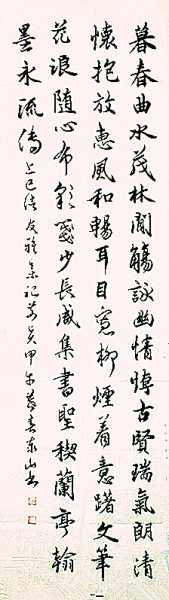 暮春曲水茂林閒觴詠幽情博古賢瑞氣朗清
懷抱放惠風和暢耳目寬柳煙着意躇文筆
花浪隨心布彩箋少長咸集書聖稧蘭亭翰
墨永流傳 上巳 友雅集記 甲午暮春東山書